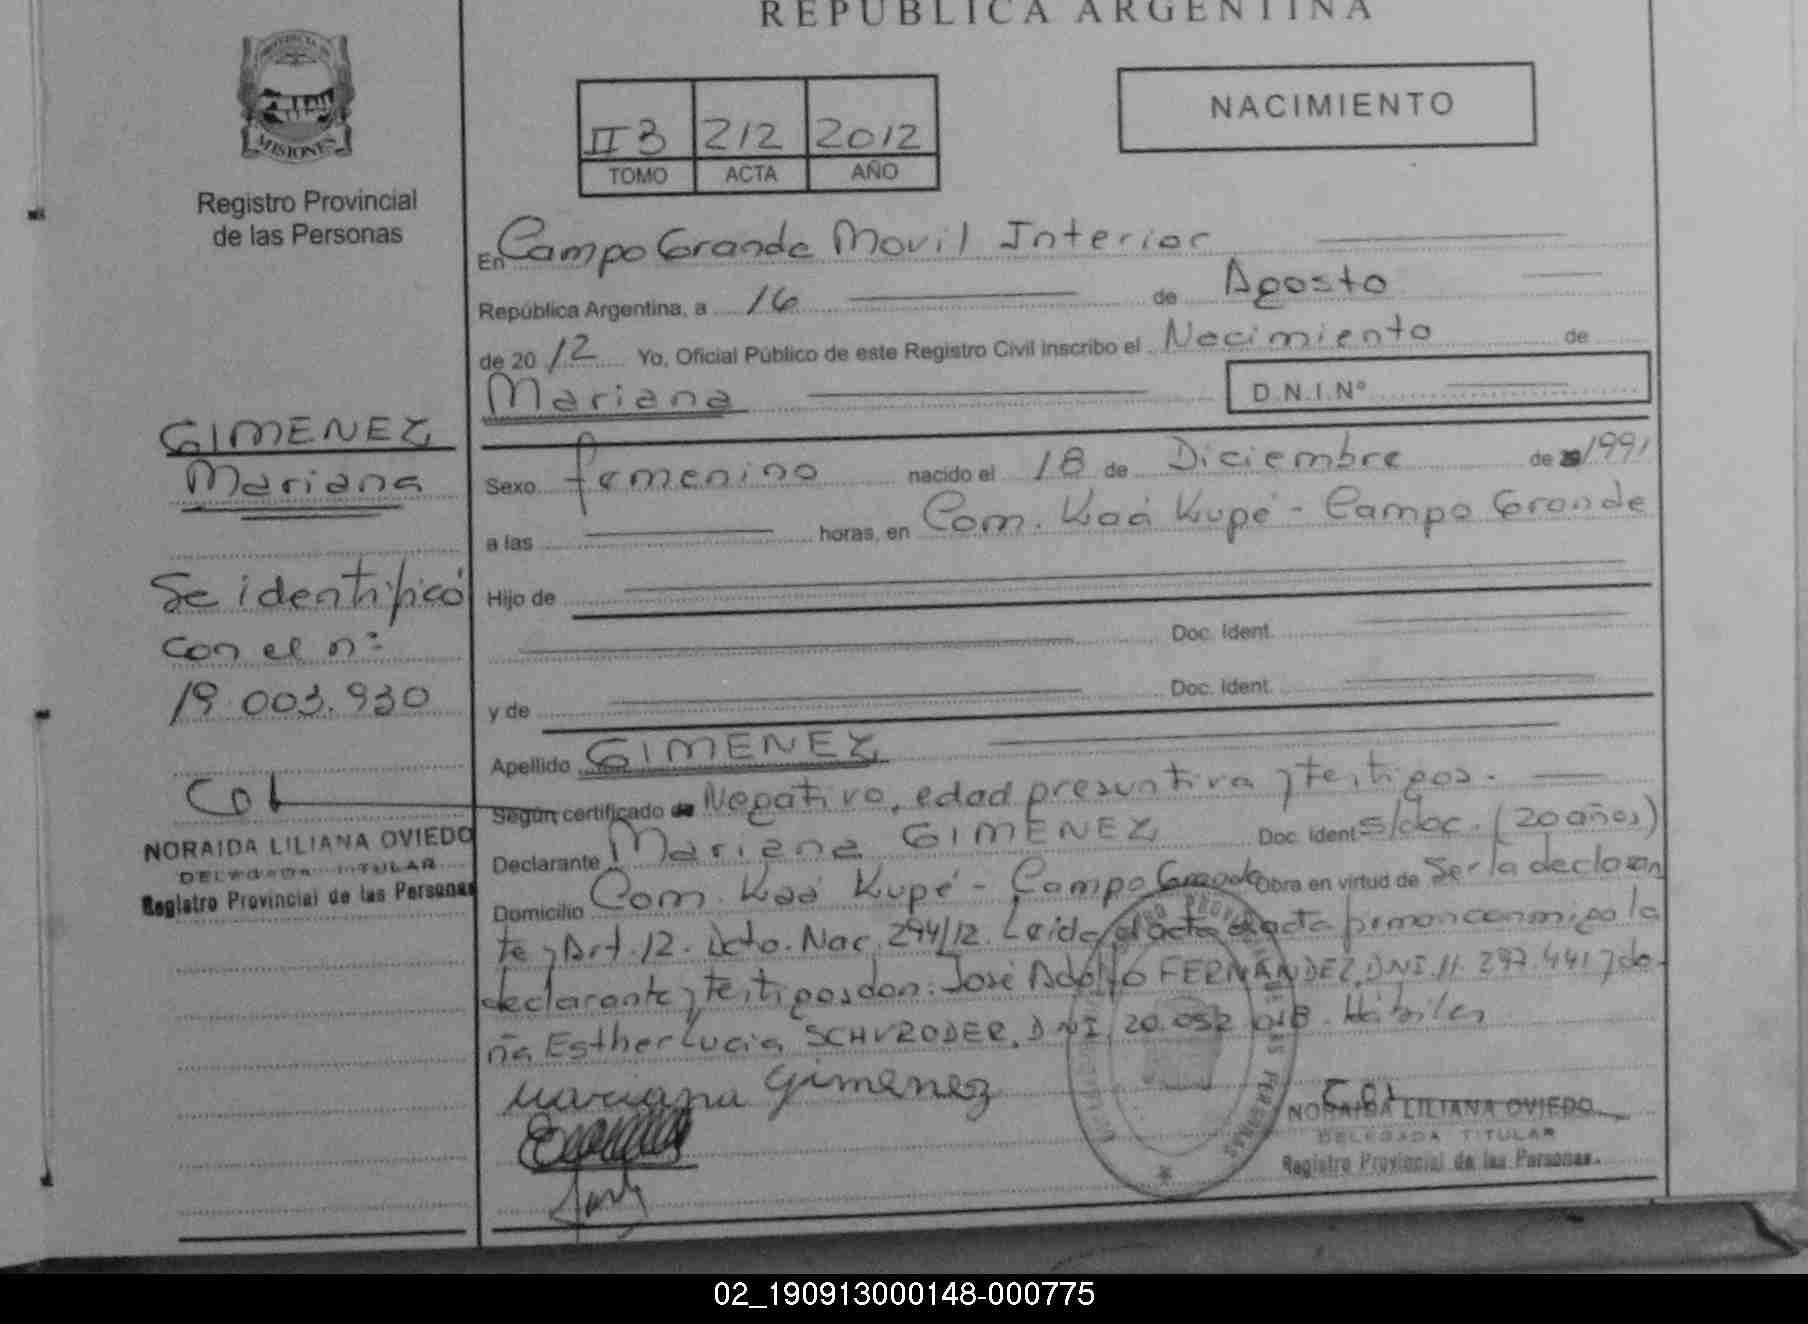 REPUBLICA ARGENTINA
PROVINCIA DE
MISIONES
Registro Provincial
de las Personas
NACIMIENTO
II B 212 2012
TOMO ACTA AÑO
En Campo Grande Movil Interior
República Argentina, a 16 de Agosto
de 2012 Yo, Oficial Público de este Registro Civil inscribo el Nacimiento de
Mariana D.N.I.Nº
GIMENEZ
Mariana
Se identificó
con el nº
19.003.930
NORAIDA LILIANA OVIEDO
DELEGADA TITULAR
Registro Provincial de las Personas
Sexo femenino nacido el 18 de Diciembre de 1991
a las horas, en Com. Kaá Kupé - Campo Grande
Hijo de
Doc. Ident.
y de Doc. Ident.
Apellido GIMENEZ
Según certificado de Negativo, edad presuntiva y testigos.
Declarante Mariana GIMENEZ Doc. Ident s/doc. (20 años)
Domicilio Com. Kaá Kupé - Campo Grande Obra en virtud de Ser la declaran
te y Art. 12. Dcto. Nac. 294/12. Leida el acta firman conmigo la
declarante y testigos don: José Adolfo FERNANDEZ, DNI. 11.297.441 y do
ña Esther Lucia SCHVRODER, DNI. 20.052.018. Hábiles
Mariana Gimenez
NORAIDA LILIANA OVIEDO
DELEGADA TITULAR
Registro Provincial de las Personas
02_190913000148-000775